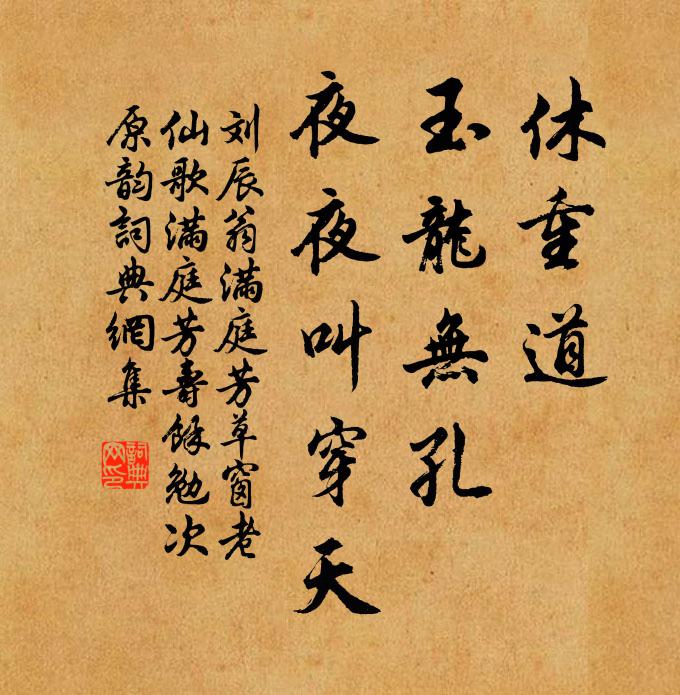 休重道
玉龍無孔
夜夜叫穿天
刘辰翁满庭芳草窗老
仙歌满庭芳壽餘勉次
原韵詞典網集
詞典
网印